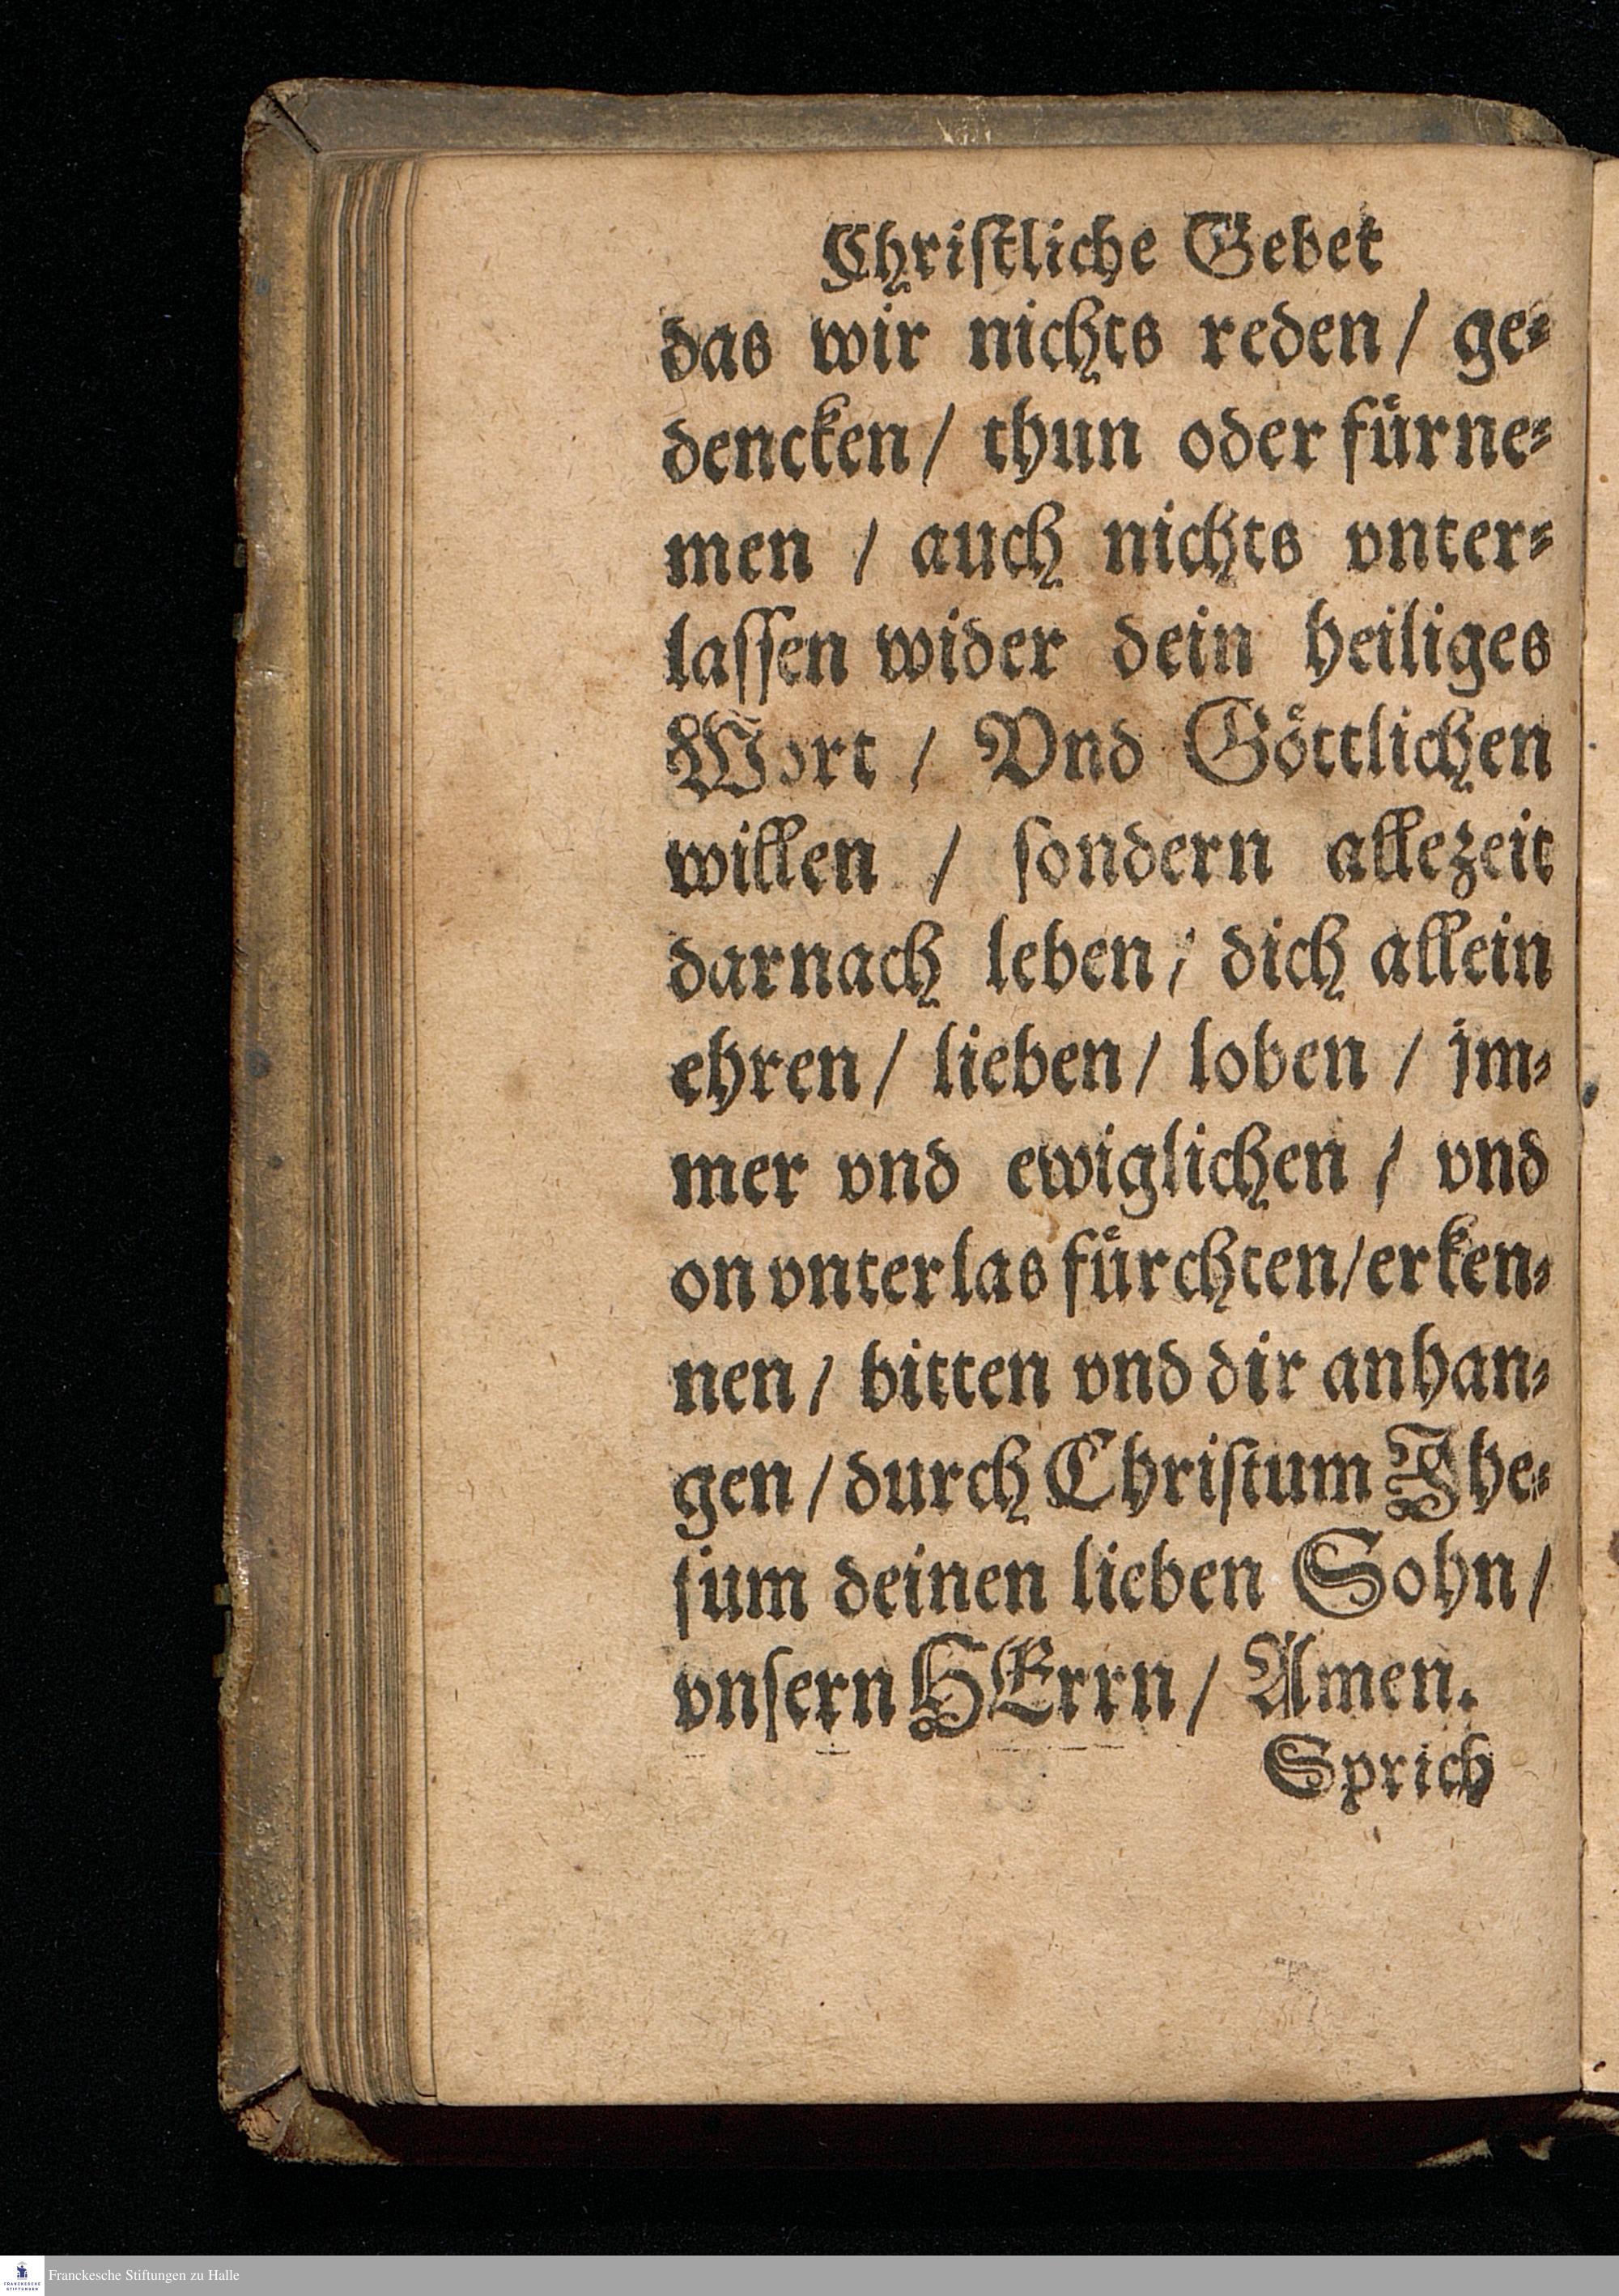 Chriſtliche Gebet
das wir nichts reden / ge⸗
dencken / thun oder fuͤrne⸗
men / auch nichts vnter⸗
laſſen wider dein heiliges
Wort / Vnd Goͤttlichen
willen / ſondern allezeit
darnach leben / dich allein
ehren / lieben / loben / jm⸗
mer vnd ewiglichen / vnd
on vnterlas fuͤrchten / erken⸗
nen / bitten vnd dir anhan⸗
gen / durch Chriſtum Jhe⸗
ſum deinen lieben Sohn /
vnſern HErrn / Amen.
Sprich
Franckesche Stiftungen zu Halle
FRANCKESCHE
STIFTUNGEN